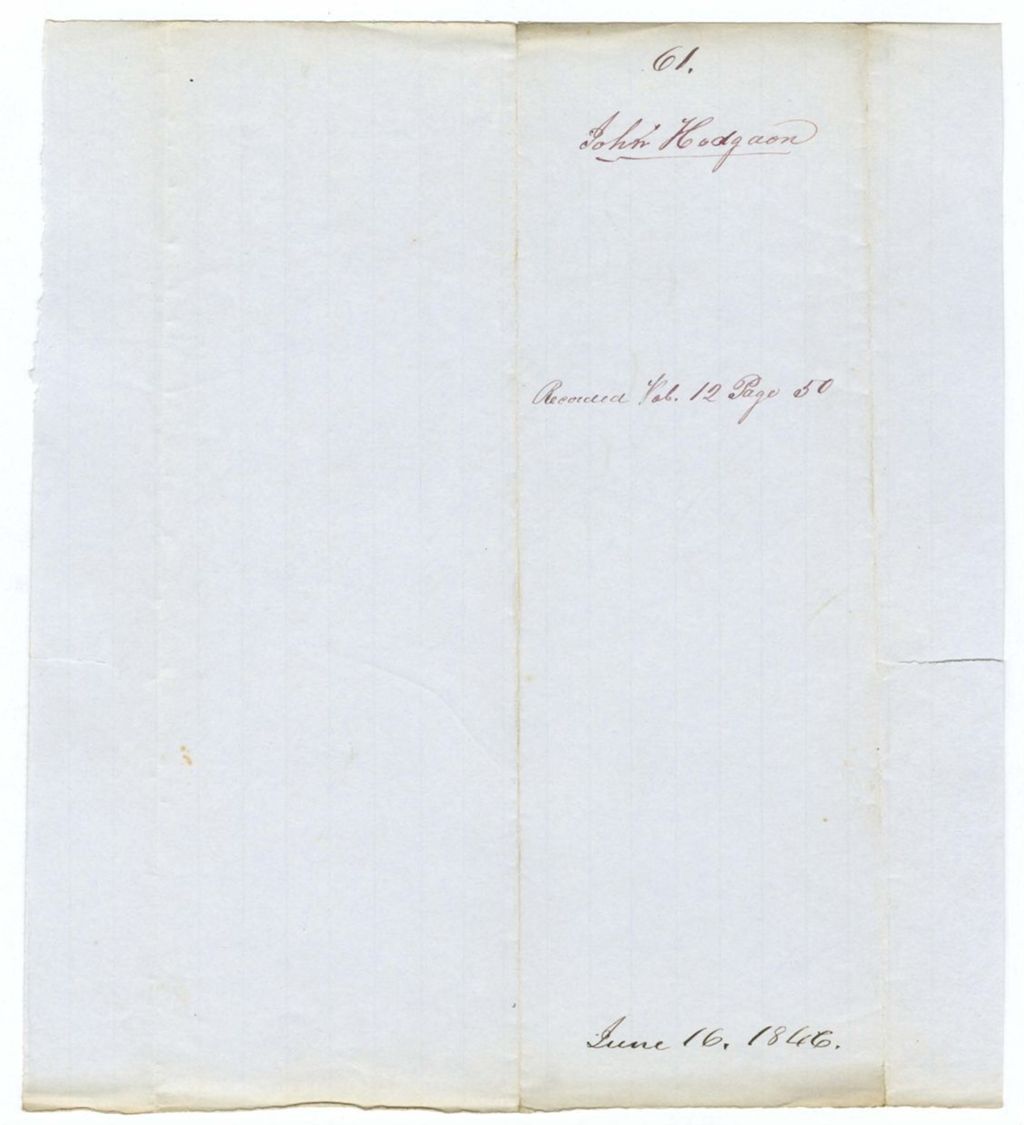 61.
John Hodgson
Recorded Vol. 12 Page 50
June 16. 1846.